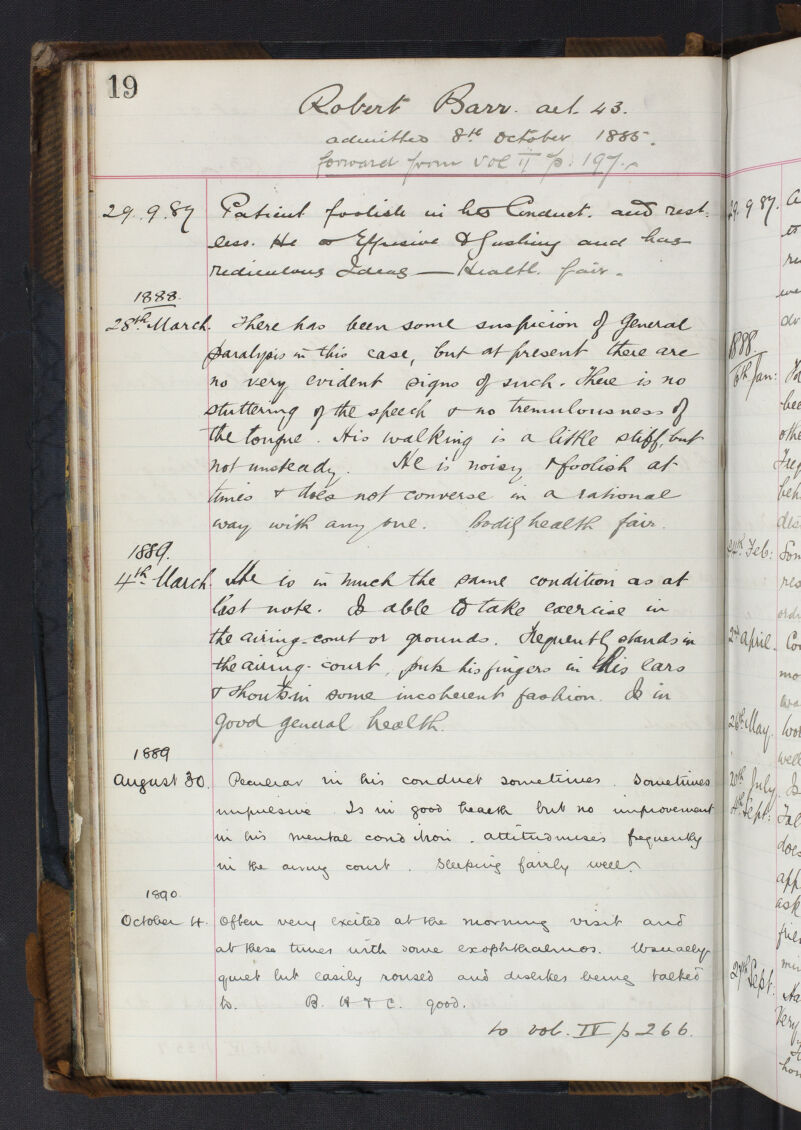 19
Robert Barr. aet. 43.
admitted 8th October 1885.
forward from Vol II p. 197.
29.9.87 Patient foolish in his Conduct. and rest-
less. He is Effusive & Gushing and has
ridiculous Ideas — Health fair.
1888.
28th March. There has been some suspicion of General
paralysis in this case, but at present there are
no very evident signs of such. There is no
stuttering of the speech & no tremulousness of
the tongue. His walking is a little stiff, but
not unsteady. He is noisy & foolish at
times & does not converse in a rational
way with any one. bodily health fair.
1889.
4th March. He is in much the same condition as at
last note. Is able to take exercise in
the airing-court or grounds. Frequently stands in
the airing-court, puts his fingers in his ears
& shouts in some incoherent fashion. Is in
good general health.
1889
August 30. Peculiar in his conduct sometimes. Sometimes
impulsive. Is in good health but no improvement
in his mental condition. attitudinises frequently
in the airing court. Sleeping fairly well.
1890.
October 4. Often very excited at the morning visit and
at these times with some exophthalmos. Usually
quiet but easily roused and dislikes being talked
to. B. H & C. good.
to vol. IV p 266.
29.9.87.
1888.
6th Jan:
24th Feb:
2nd April.
26th May.
20th July
4th Sept:
27th Sept.